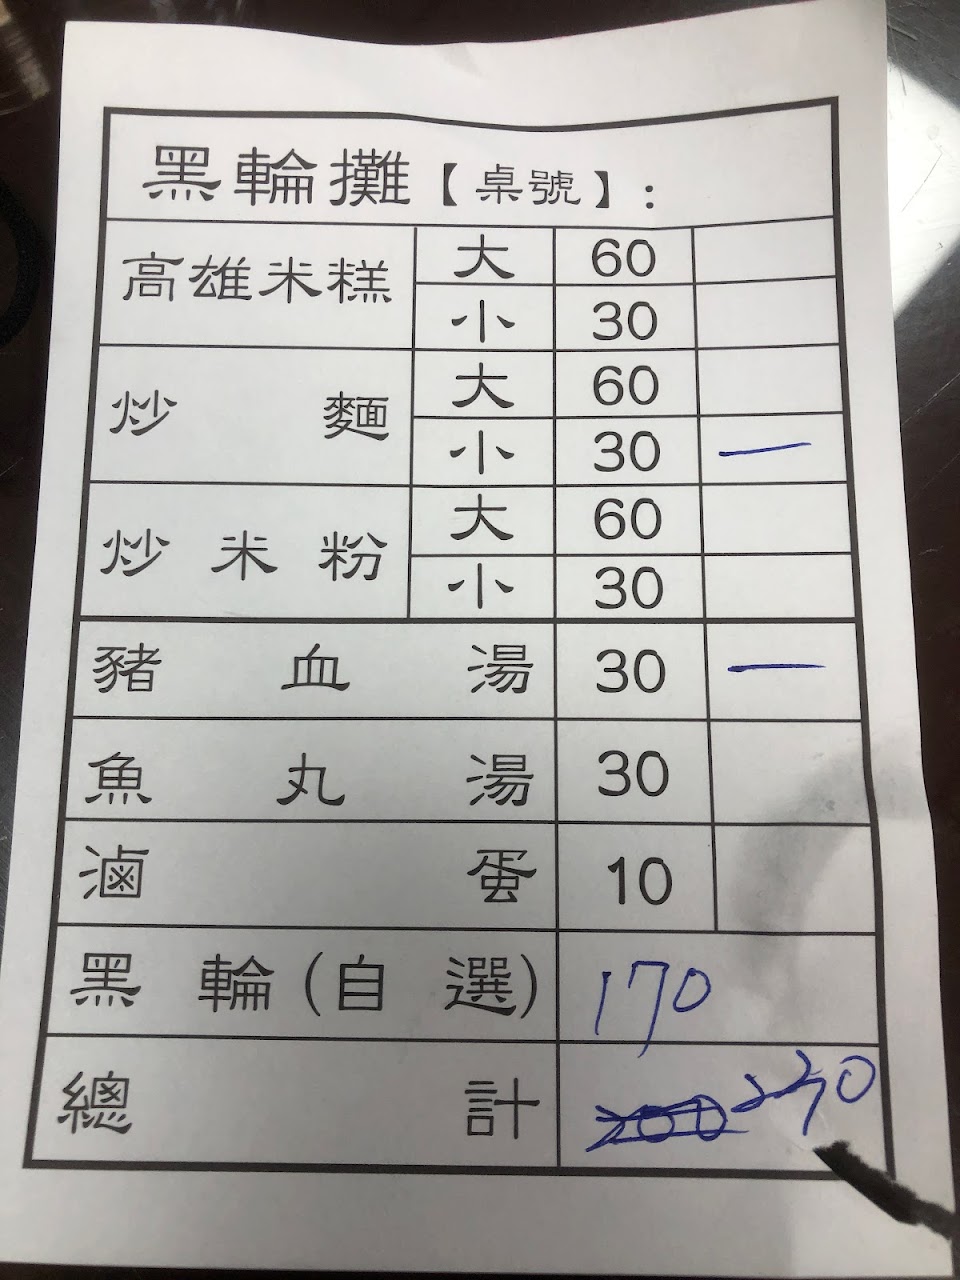 黑輪攤【桌號】:
高雄米糕 大 60
小 30
炒麵 大 60
小 30 一
炒米粉 大 60
小 30
豬血湯 30 一
魚丸湯 30
滷蛋 10
黑輪(自選) 170
總計 200 230